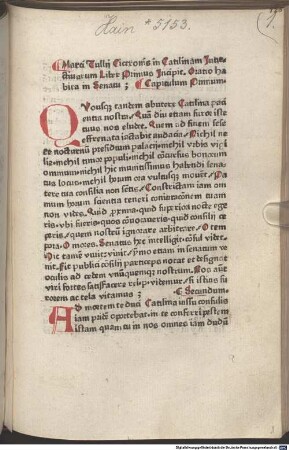 Hain * 5153.
1.
Marci Tullij Ciceronis in Catilinam Inue-
ctiuarum Liber Primus Incipit. Oratio ha-
bita in Senatu ; Capitulum Primum.
QVousque tandem abutere Catilina pacien
tia nostra. Quā diu etiam furor iste
tuus nos eludet. Quem ad finem sese
effrenata iactabit audacia. Nichil ne
te nocturnū presidium palacij. nichil vrbis vigi
lie. nichil timor populi. nichil cōcursus bonorum
omnium. nichil hic munitissimus habendi sena-
tus locus. nichil horum ora vultusque mouēt. Pa
tere tua consilia non sentis. Constrictam iam om
nium horum scientia teneri coniurationē tuam
non vides. Quid proxima. quid superiora nocte ege
ris. vbi fueris. quos cōuocaueris. quid consilij ce
peris. quem nostrū ignorare arbitrare. O tem
pora. O mores. Senatus hec intelligit. cōsul videt.
Hic tamē viuit. viuit. ymo etiam in senatum ve
nit. Fit publici cōsilij particeps. notat et designat
oculis ad cedem vnūquemque nostrum. Nos aut
viri fortes satisfacere reip. videmur. si istius fu
rorem ac tela vitamus ; Secundum.
AD mortem te duci Catilina iussu consulis
iam pridē oportebat. in te conferri pestem
istam quam tu in nos omnes iam dudū